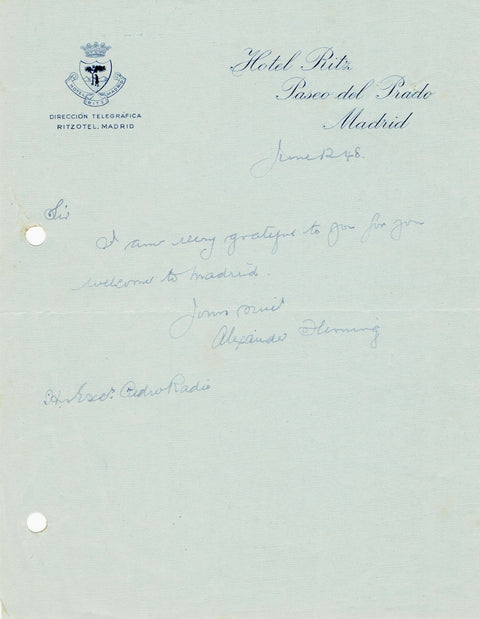 HOTEL
RITZ
MADRID
DIRECCIÓN TELEGRÁFICA
RITZOTEL. MADRID
Hotel Ritz
Paseo del Prado
Madrid
June 12 48.
Sir
I am very grateful to you for your
welcome to Madrid.
Yours
Alexander Fleming
Pedro Radio